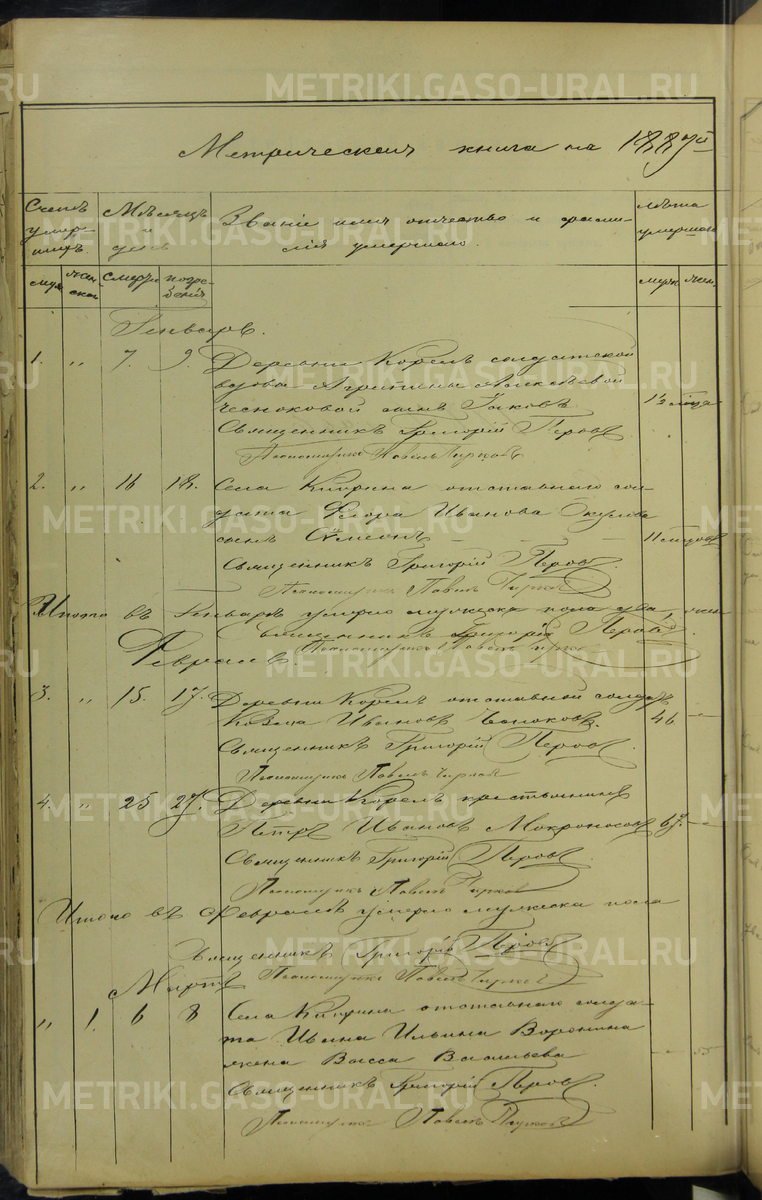 METRIKI.GASO-URAL.RU
Метрическая книга на 1887й
Счетъ умер-шихъ.
Мѣсяцъ и день
Званіе имя отчество и фами-
лія умершаго.
Лѣта умершаго
муж. жен-ска. смерти погре-бенія муж. жен.
Генварь.
1. „ 7. 9. Деревни солдатской
вдова Агрипины Алексѣевой
чесноковой сынъ Іаковъ
Священникъ Григорій Перов
Псаломщикъ Павелъ
2. „ 16 18. Села отставнаго сол-
дата Ѳедора Иванова
сынъ Симеонъ 11 мѣсяцов
Священникъ Григорій Перов
Псаломщикъ Павелъ
Итого въ Генварѣ умерло мужеска пола два, жен
Священникъ Григорій Перов.
Псаломщикъ Павелъ
Февраль.
3. „ 15. 17. Деревни отставной солдатъ
Иванов 46 —
Священникъ Григорій Перов.
Псаломщикъ Павелъ
4. „ 25 27. Деревни крестьянинъ
Петръ Ивановъ Мокроносов 67. —
Священникъ Григорій Перов.
Псаломщикъ Павелъ
Итого въ Февралѣ умерло мужеска пола
Священникъ Григорій Перов
Псаломщикъ Павелъ
Мартъ
„ 1. 6 8 Села отставнаго солда-
та Ивана Ильина Воронина
жена Васса Васильева — 55
Священникъ Григорій Перов.
Псаломщикъ Павелъ